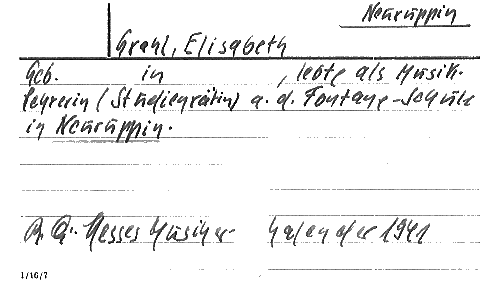 Neuruppin
Grahl, Elisabeth
Geb. in , lebte als Musik-
lehrerin (Studienrätin) a. d. Fontane-Schule
in Neuruppin.
Hesses Musiker- Kalender 1941
1/10/7